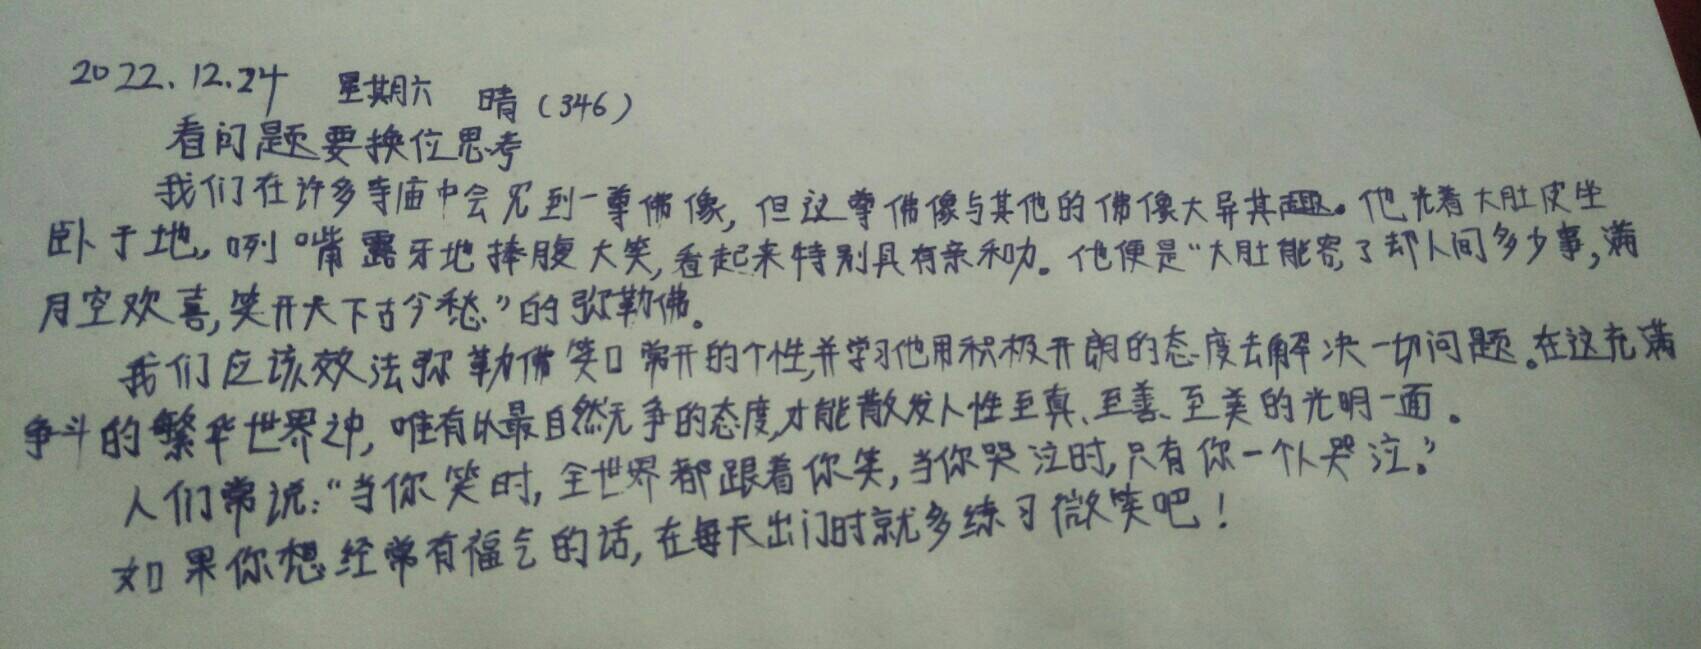 2022.12.24 星期六 晴(346)
看问题要换位思考
我们在许多寺庙中会见到一尊佛像,但这尊佛像与其他的佛像大异其趣。他光着大肚皮坐
卧于地,咧嘴露牙地捧腹大笑,看起来特别具有亲和力。他便是“大肚能容了却人间多少事,满
月空欢喜,笑开天下古今愁”的弥勒佛。
我们应该效法弥勒佛笑口常开的个性,并学习他用积极开朗的态度去解决一切问题。在这充满
争斗的繁华世界之中,唯有以最自然无争的态度,才能散发人性至真、至善、至美的光明一面。
人们常说:“当你笑时,全世界都跟着你笑,当你哭泣时,只有你一个人哭泣。”
如果你想经常有福气的话,在每天出门时就多练习微笑吧!